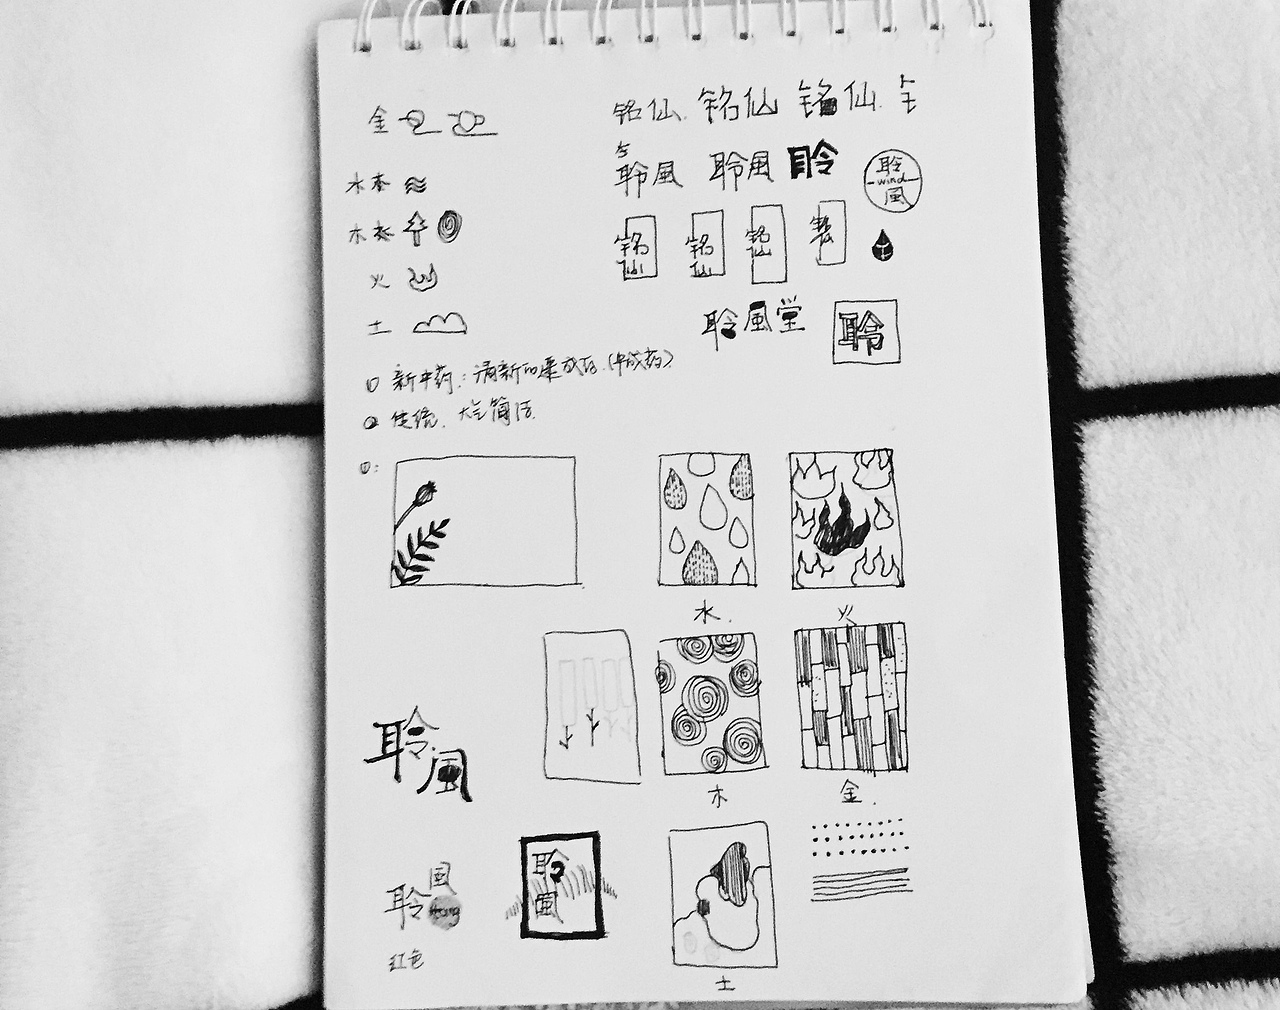 金
铭仙 铭仙 铭仙
聆風 聆風 聆
聆
wind
風
水
木
铭仙 铭仙 铭仙
火
土
聆風堂
聆
① 新中药:清新的 (中成药)
② 传统、大气简洁
①:
水 火
木 金
聆風
聆風
聆風
红色
土